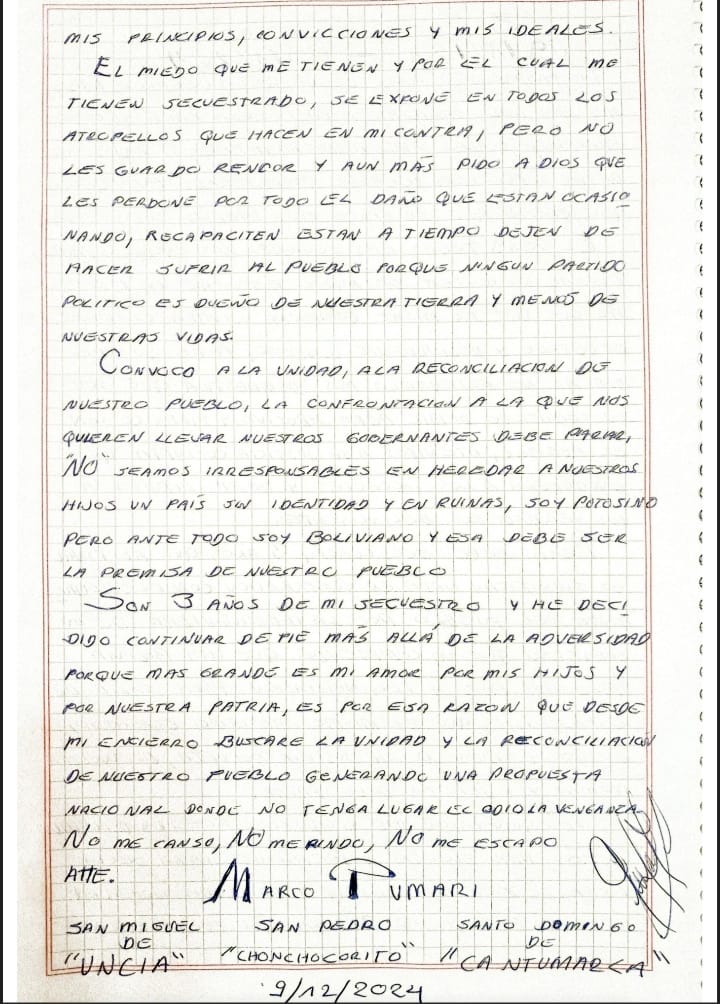 MIS PRINCIPIOS, CONVICCIONES Y MIS IDEALES.
EL MIEDO QUE ME TIENEN Y POR EL CUAL ME
TIENEN SECUESTRADO, SE EXPONE EN TODOS LOS
ATROPELLOS QUE HACEN EN MI CONTRA, PERO NO
LES GUARDO RENCOR Y AUN MÁS PIDO A DIOS QUE
LES PERDONE POR TODO EL DAÑO QUE ESTAN OCASIO
NANDO, RECAPACITEN ESTAN A TIEMPO DEJEN DE
HACER SUFRIR AL PUEBLO PORQUE NINGUN PARTIDO
POLITICO ES DUEÑO DE NUESTRA TIERRA Y MENOS DE
NUESTRAS VIDAS.
CONVOCO A LA UNIDAD, A LA RECONCILIACION DE
NUESTRO PUEBLO, LA CONFRONTACION A LA QUE NOS
QUIEREN LLEVAR NUESTROS GOBERNANTES DEBE PARAR,
"NO" SEAMOS IRRESPONSABLES EN HEREDAR A NUESTROS
HIJOS UN PAÍS SIN IDENTIDAD Y EN RUINAS, SOY POTOSINO
PERO ANTE TODO SOY BOLIVIANO Y ESA DEBE SER
LA PREMISA DE NUESTRO PUEBLO
SON 3 AÑOS DE MI SECUESTRO Y HE DECI
DIDO CONTINUAR DE PIE MÁS ALLÁ DE LA ADVERSIDAD
PORQUE MAS GRANDE ES MI AMOR POR MIS HIJOS Y
POR NUESTRA PATRIA, ES POR ESA RAZON QUE DESDE
MI ENCIERRO BUSCARE LA UNIDAD Y LA RECONCILIACION
DE NUESTRO PUEBLO GENERANDO UNA PROPUESTA
NACIONAL DONDE NO TENGA LUGAR EL ODIO LA VENGANZA
NO ME CANSO, NO ME RINDO, NO ME ESCAPO
ATTE.
MARCO PUMARI
SAN MIGUEL DE "UNCIA"
SAN PEDRO "CHONCHOCORITO"
SANTO DOMINGO DE "CANTUMARCA"
9/12/2024